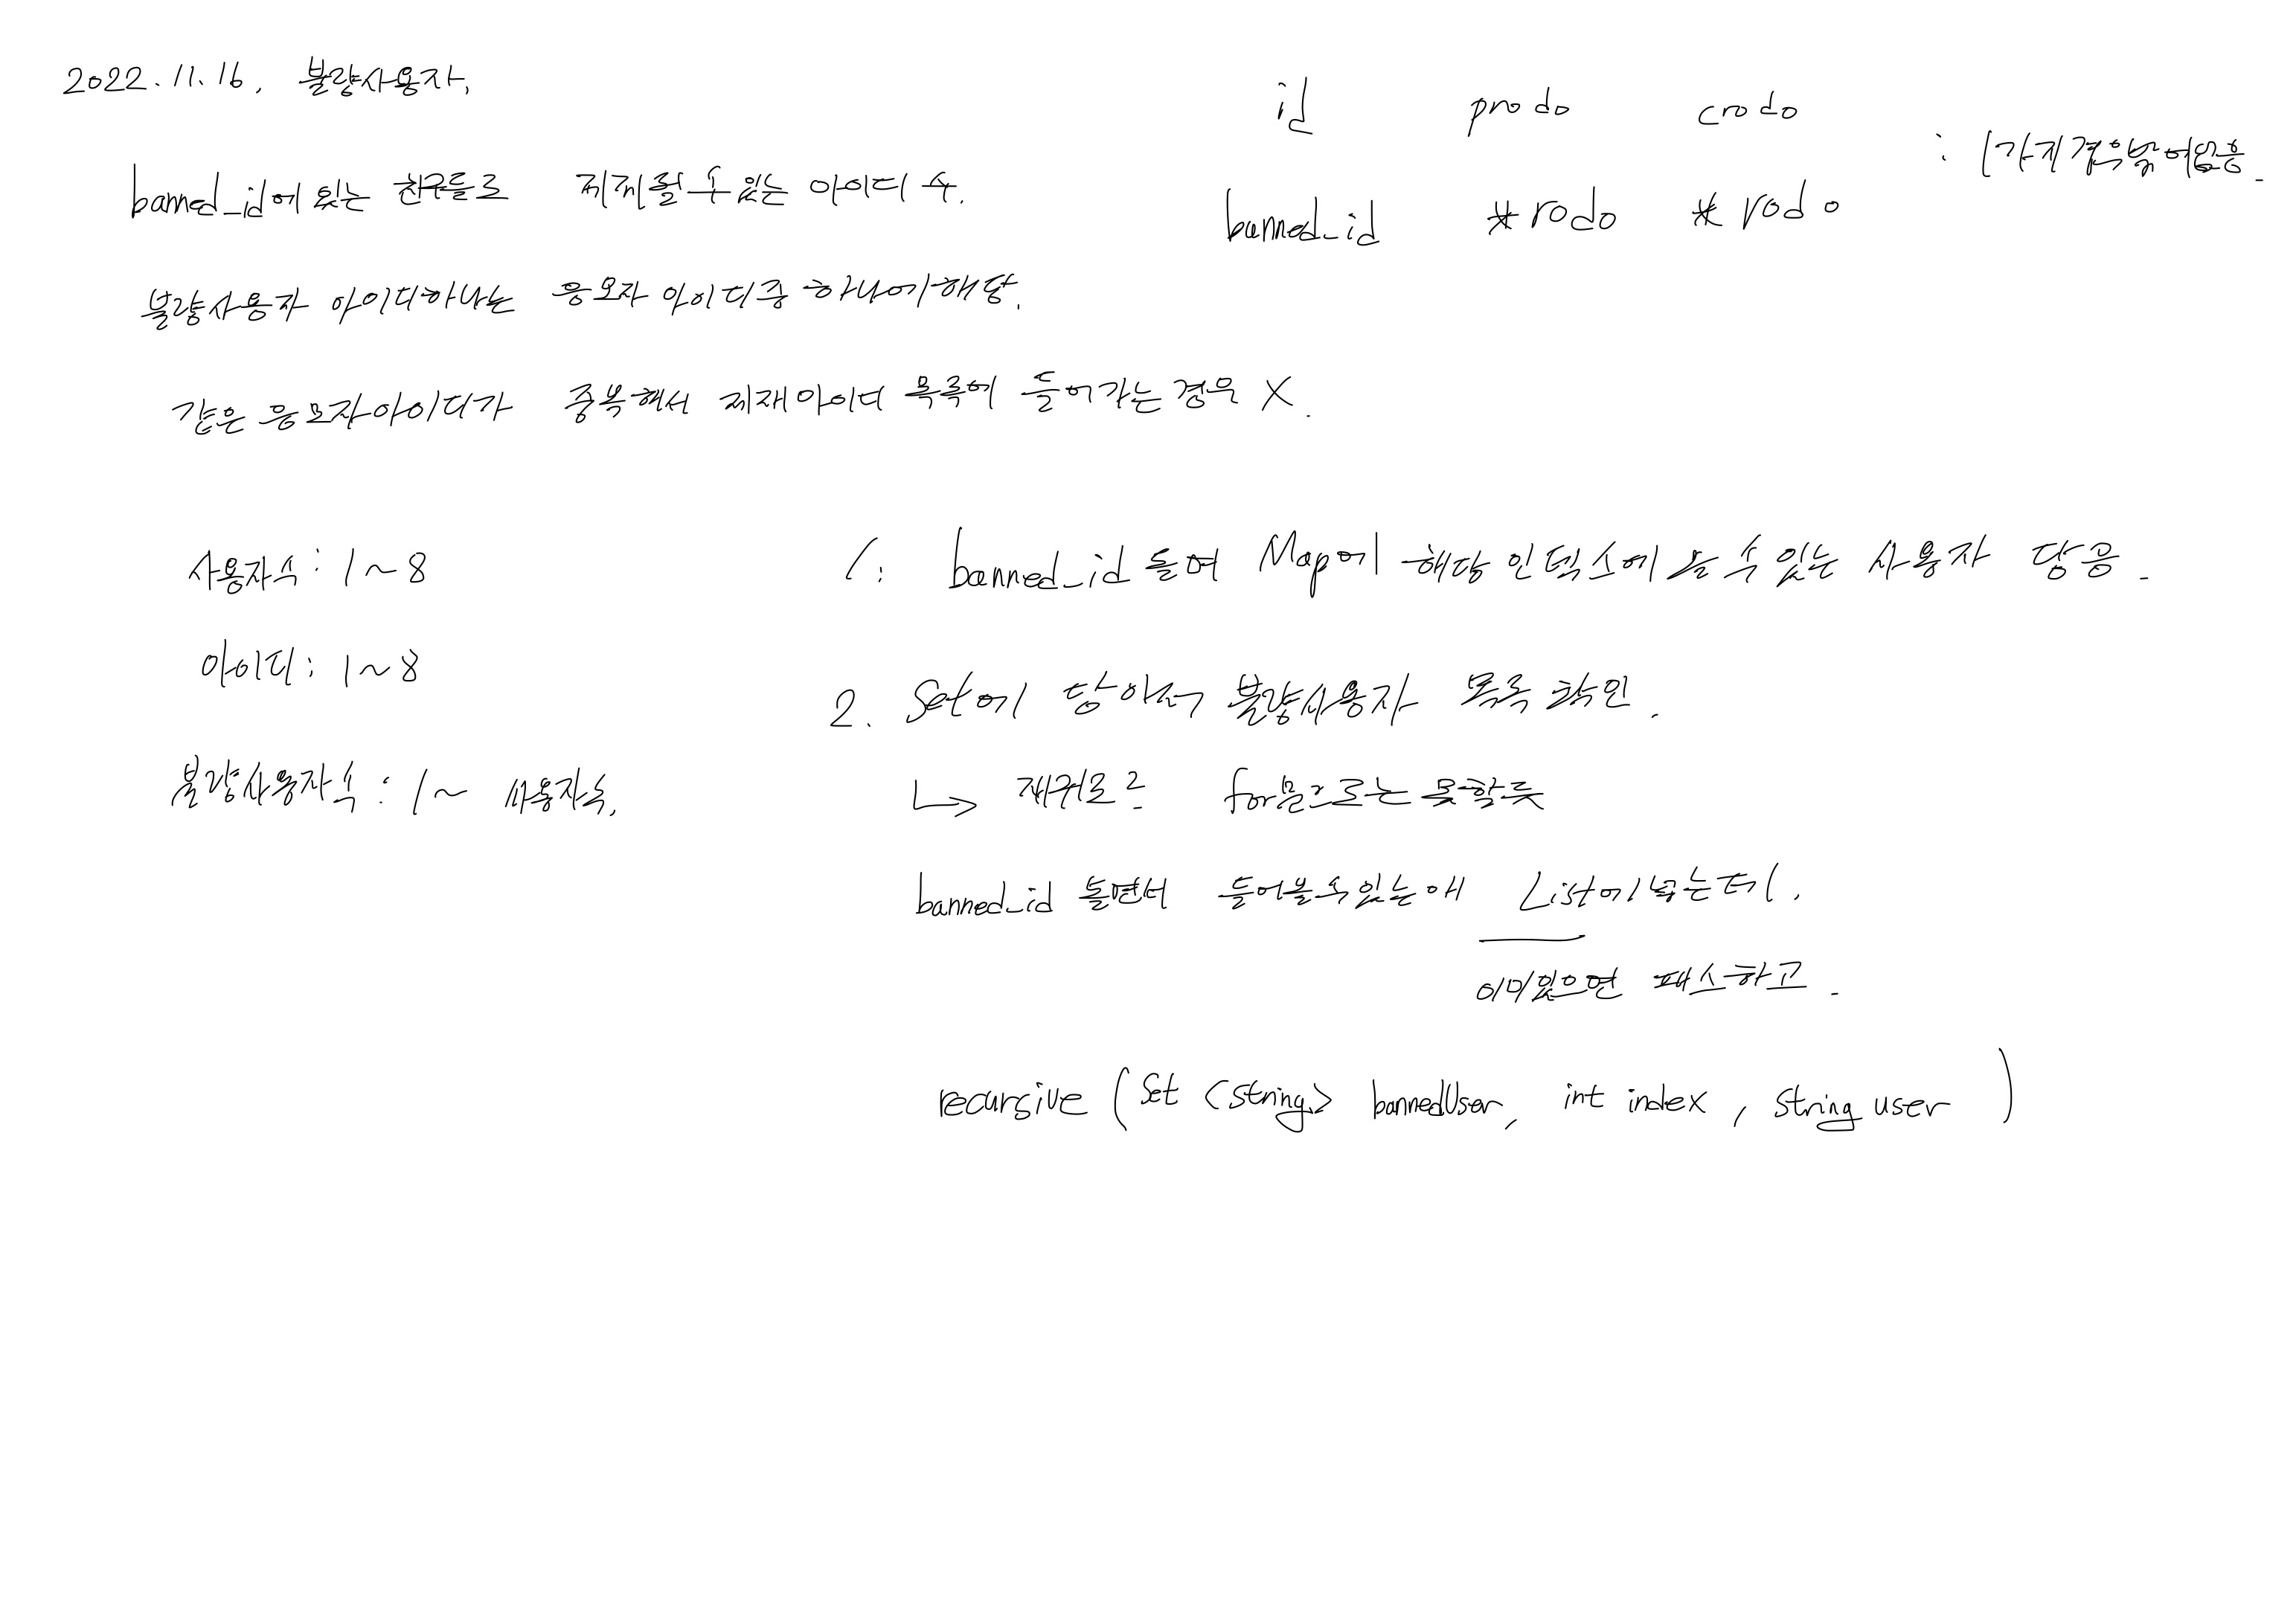 2022.11.16. 불량사용자.
banned_id에 있는 친구들로 제재될 수 있는 아이디 수.
불량사용자 아이디하나는 응모자 아이디중 하나에해당.
같은 응모자아이디가 중복해서 제재아이디 목록에 들어가는 경우 X.
사용자수 : 1~8
아이디 : 1~8
불량사용자수 : 1~ 사용자수.
id prodo crodo
banned_id *rodo *rodo
: 1가지경우밖에없음.
1. banned_id 돌며 Map에 해당 인덱스에 올 수 있는 사용자 담음.
2. Set에 담아서 불량사용자 목록 확인.
↳ 재귀로? for문으로는 못할듯
banned_id 돌면서 들어올수있는애 List에 넣는데.
이미있으면 패스하고.
recursive (Set <String> bannedUser, int index, String user )